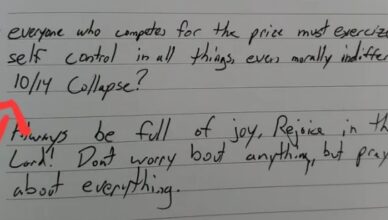 everyone who competes for the price must exercize
self control in all things, even morally indiffe
10/14 Collapse?
Always be full of joy, Rejoice in th
Lord! Dont worry bout anything, but pray
about everything.